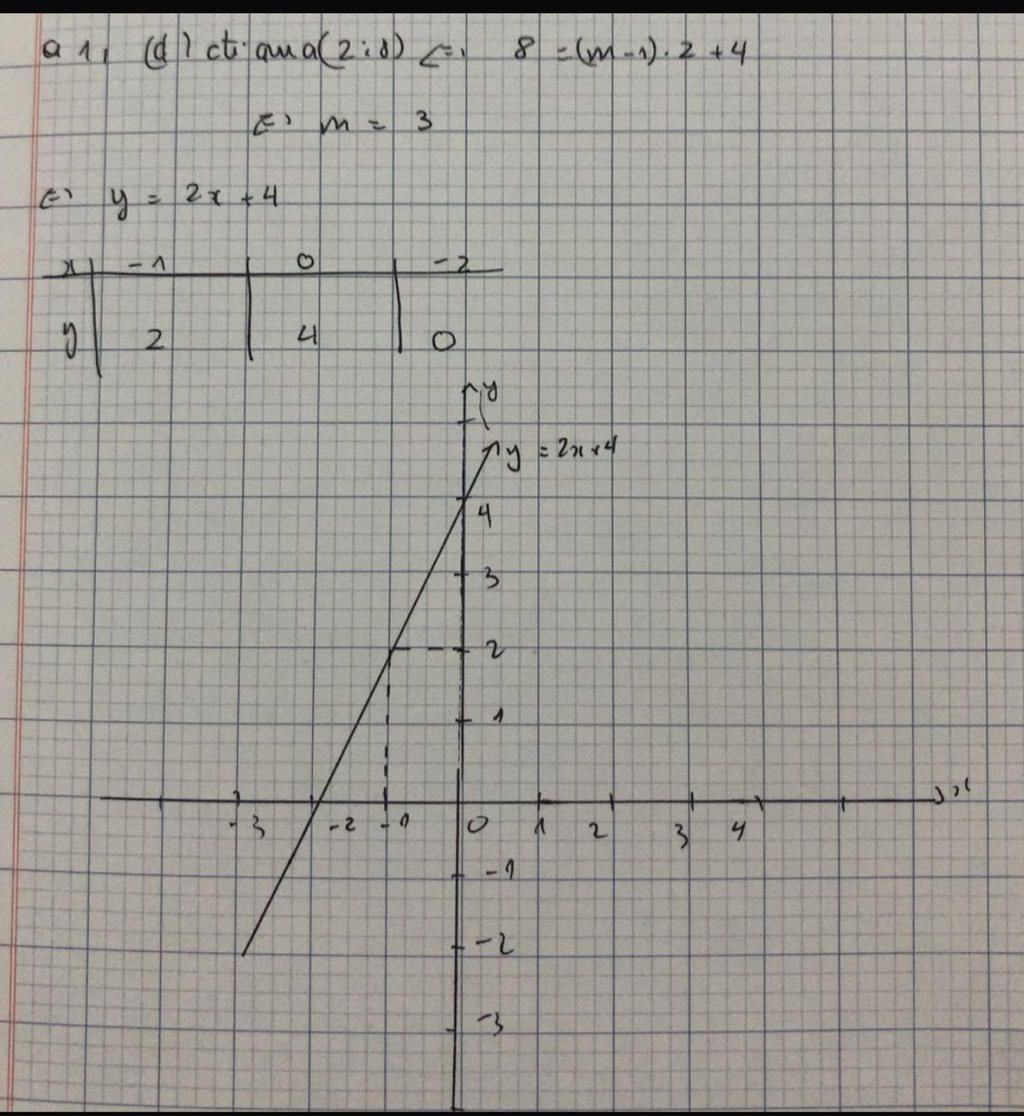 a 1, (d) ct qua (2;8) <=> 8 = (m-1).2+4
<=> m = 3
<=> y = 2x+4
x -1 0 -2
y 2 4 0
y
y = 2x+4
4
3
2
1
-3 -2 -1 0 1 2 3 4 x
-1
-2
-3